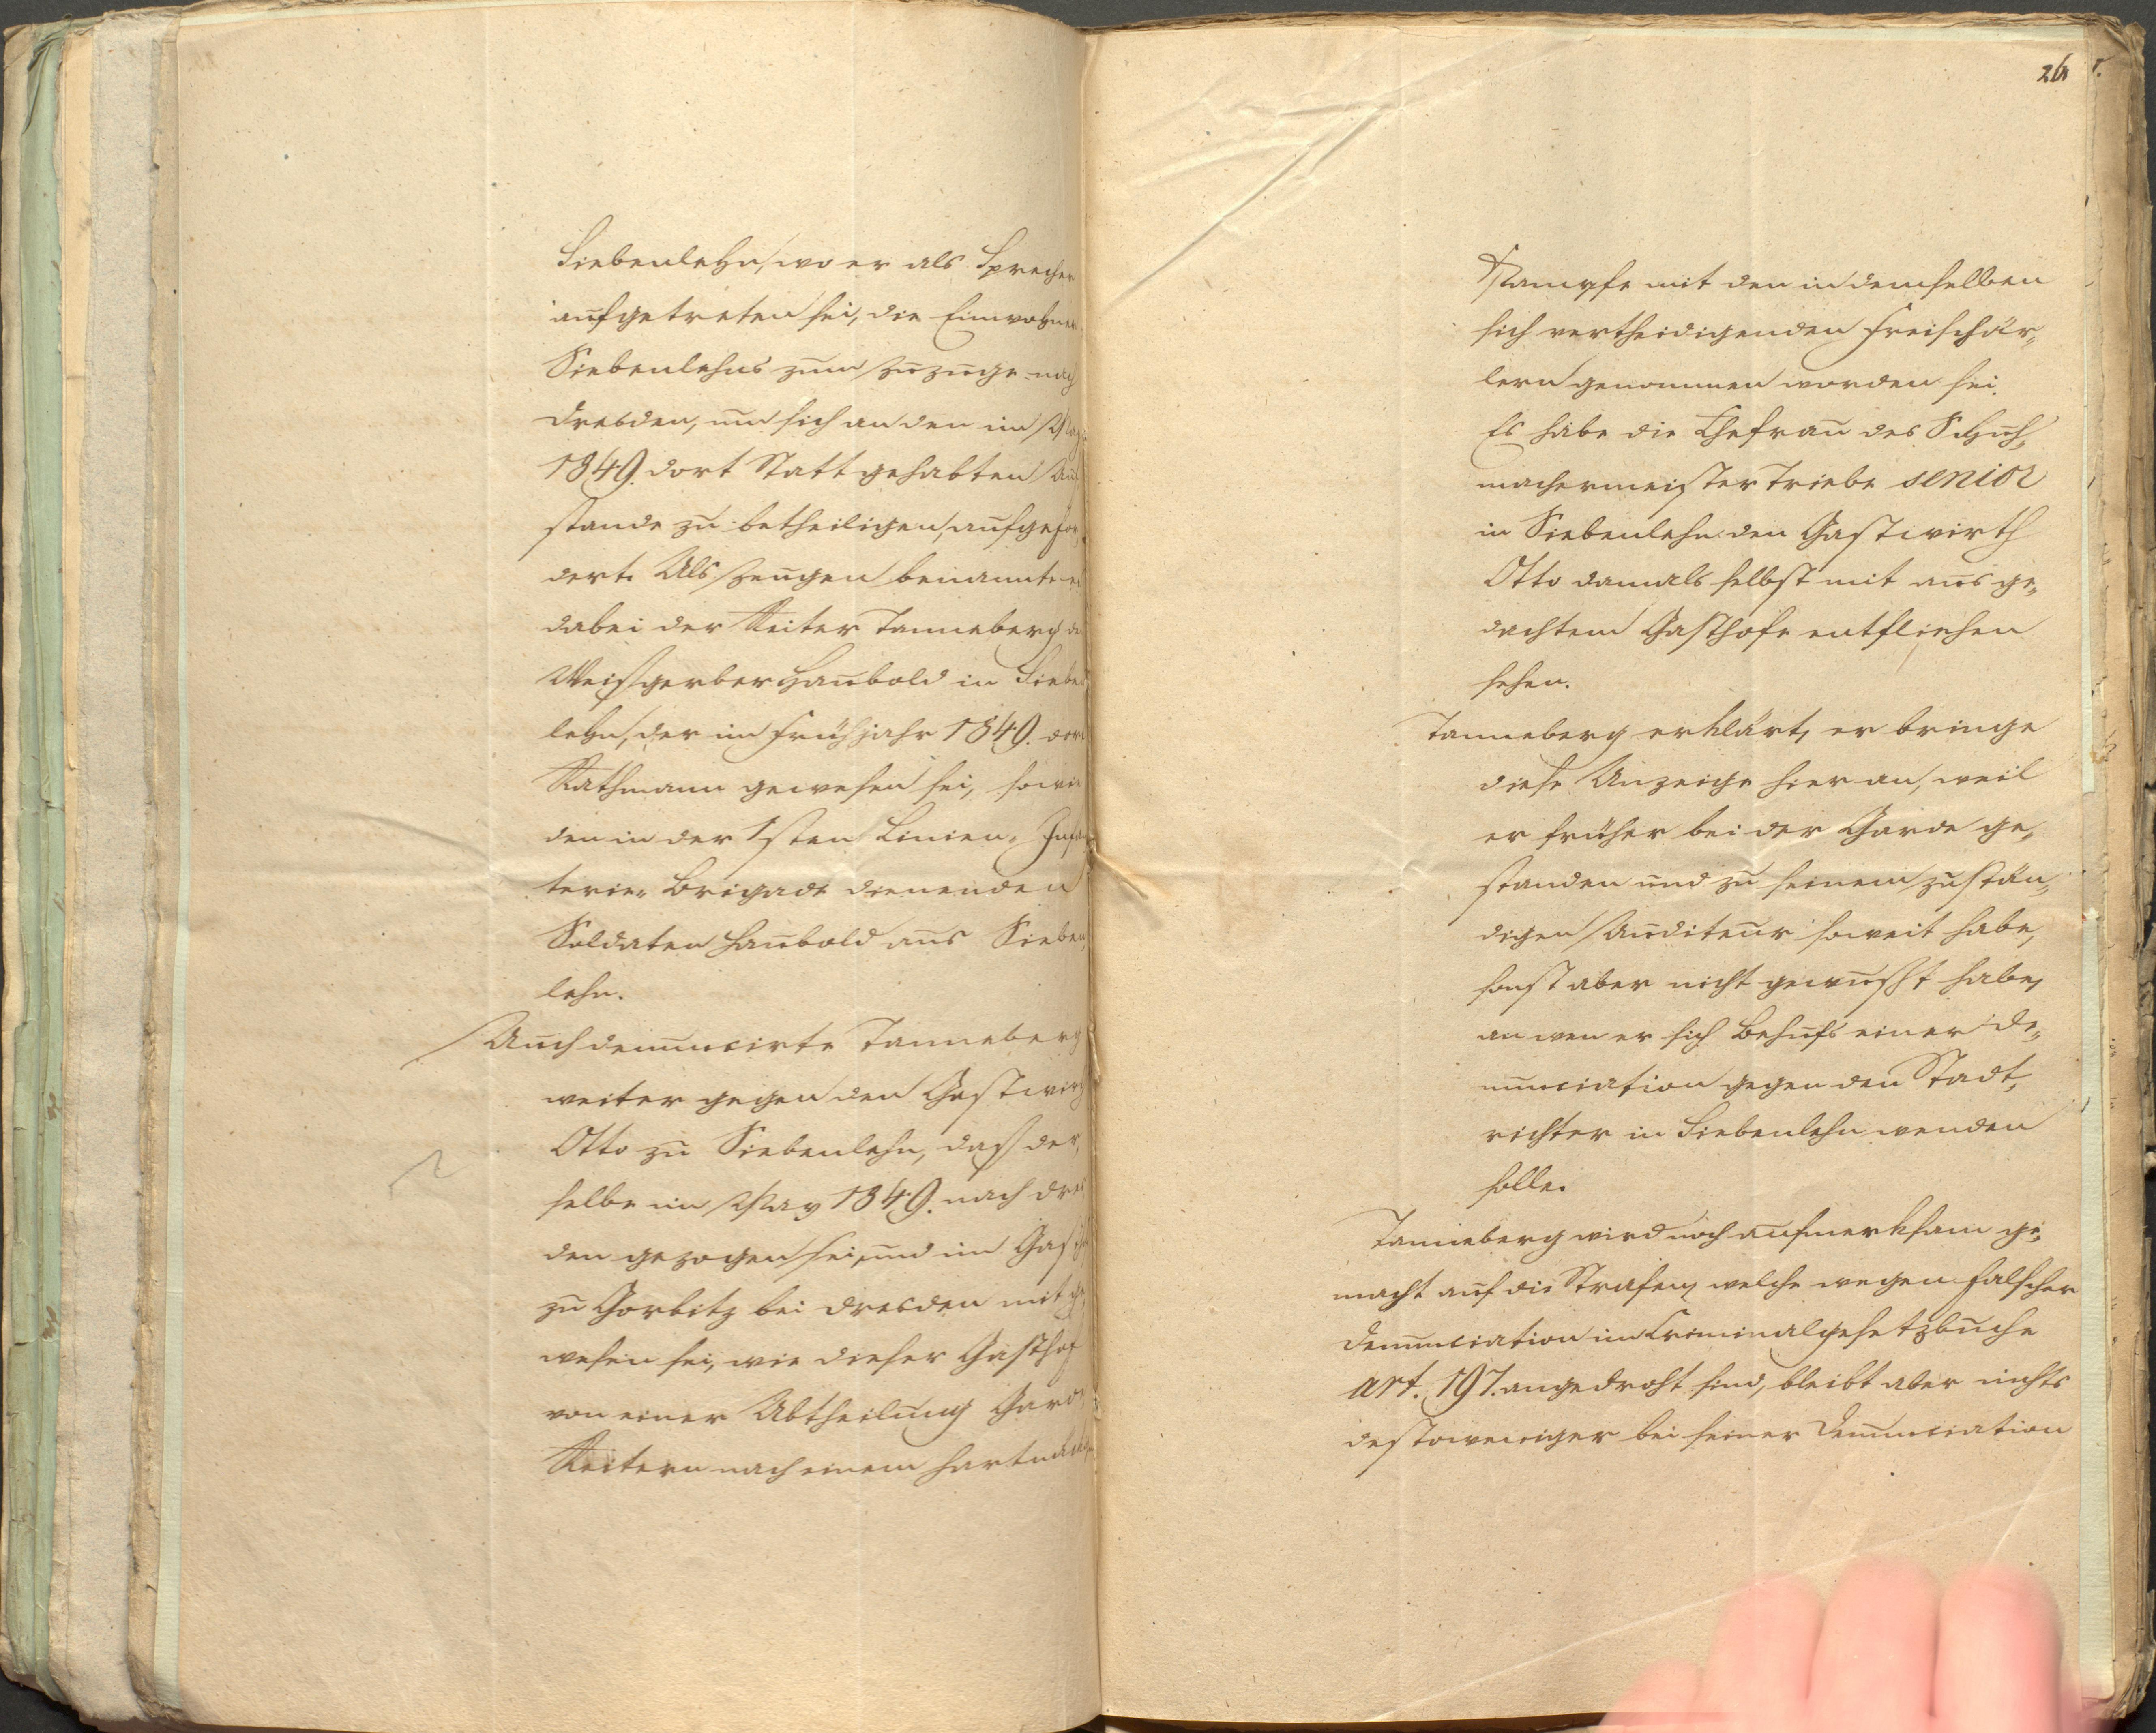 Siebenlehn, wo er als Sprecher
aufgetreten sei, die Einwohner
Siebenlehns zum Zuzuge nach
Dresden, um sich an den im May
1849. dort Statt gehabten Auf
stande zu betheiligen, aufgefor,
dert. Als Zeugen benannte er
dabei der Reiter Tanneberg den
Weißgerber Haubold in Sieben
lehn, der im Frühjahr 1849. dort
Rathmann gewesen sei, sowie
den in der 1sten Linien-Infan
terie-Brigade dienenden
Soldaten Haubold aus Sieben,
lehn.
Auch denuncirte Tanneberg
weiter gegen den Gastwirth
Otto zu Siebenlehn, daß der,
selbe im May 1849. nach Dres
den gezogen sei, und im Gasthofe
zu Gorbitz bei Dresden mit ge,
wesen sei, wie dieser Gasthof
von einer Abtheilung Garde
Reitern nach einem hartnäckigen
26
Kampfe mit den in demselben
sich vertheidigenden Freischär,
lern genommen worden sei.
Es habe die Ehefrau des Schuh,
machermeister Triebe senior
in Siebenlehn den Gastwirth
Otto damals selbst mit aus ge,
dachtem Gasthofe entfliehen
sehen.
Tanneberg erklärt, er bringe
diese Anzeige hier an, weil
er früher bei der Garde ge,
standen und zu seinem zustän,
digen Auditeur soweit habe,
sonst aber nicht gewußt habe,
an wen er sich Behufs einer De,
nunciation gegen den Stadt,
richter in Siebenlehn wenden
solle.
Tanneberg wird noch aufmerksam ge,
macht auf die Strafen, welche wegen falscher
Denunciation im Criminalgesetzbuche
art. 197. angedroht sind, bleibt aber nichts
destoweniger bei seiner Denunciation